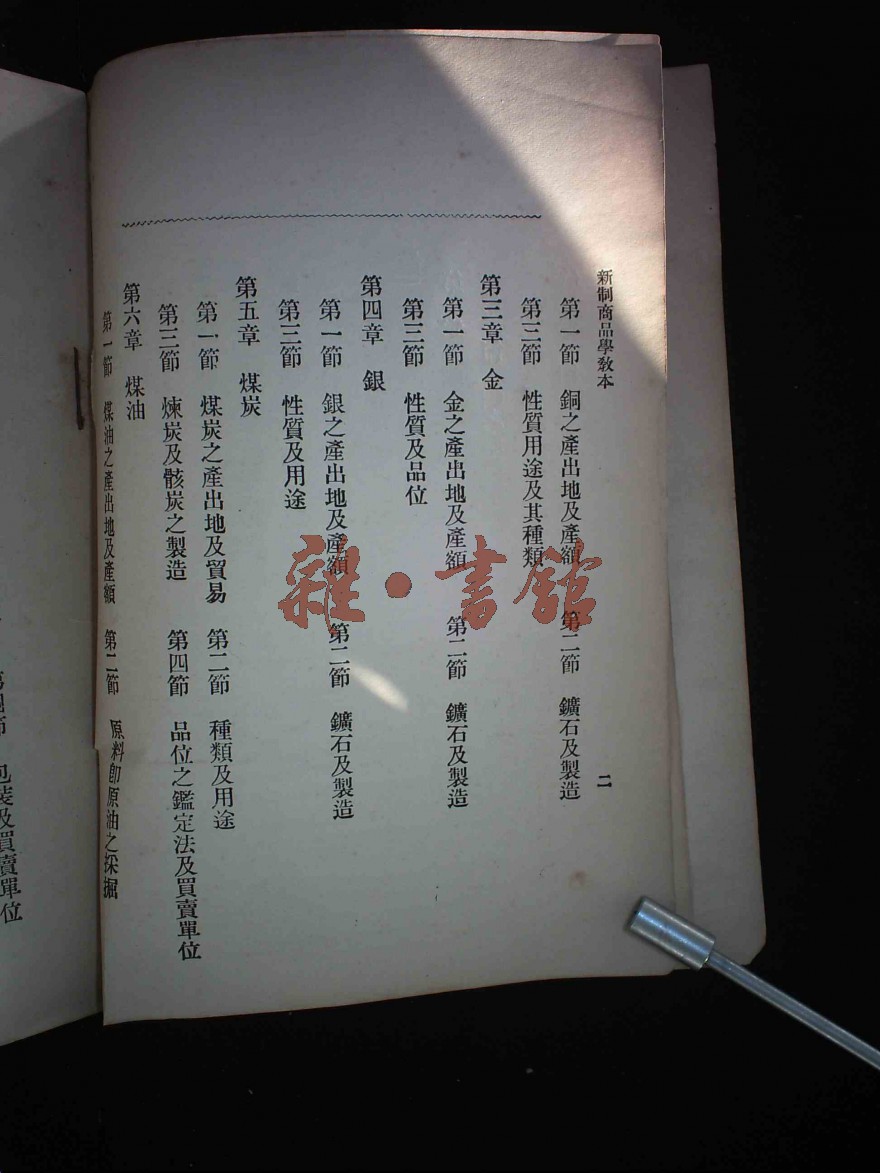 新制商品學教本
二
第一節 銅之產出地及產額 第二節 鑛石及製造
第三節 性質用途及其種類
第三章 金
第一節 金之產出地及產額 第二節 鑛石及製造
第三節 性質及品位
第四章 銀
第一節 銀之產出地及產額 第二節 鑛石及製造
第三節 性質及用途
第五章 煤炭
第一節 煤炭之產出地及貿易 第二節 種類及用途
第三節 煉炭及骸炭之製造 第四節 品位之鑑定法及買賣單位
第六章 煤油
第一節 煤油之產出地及產額 第二節 原料卽原油之採掘
第四節 包裝及買賣單位
雜·書館